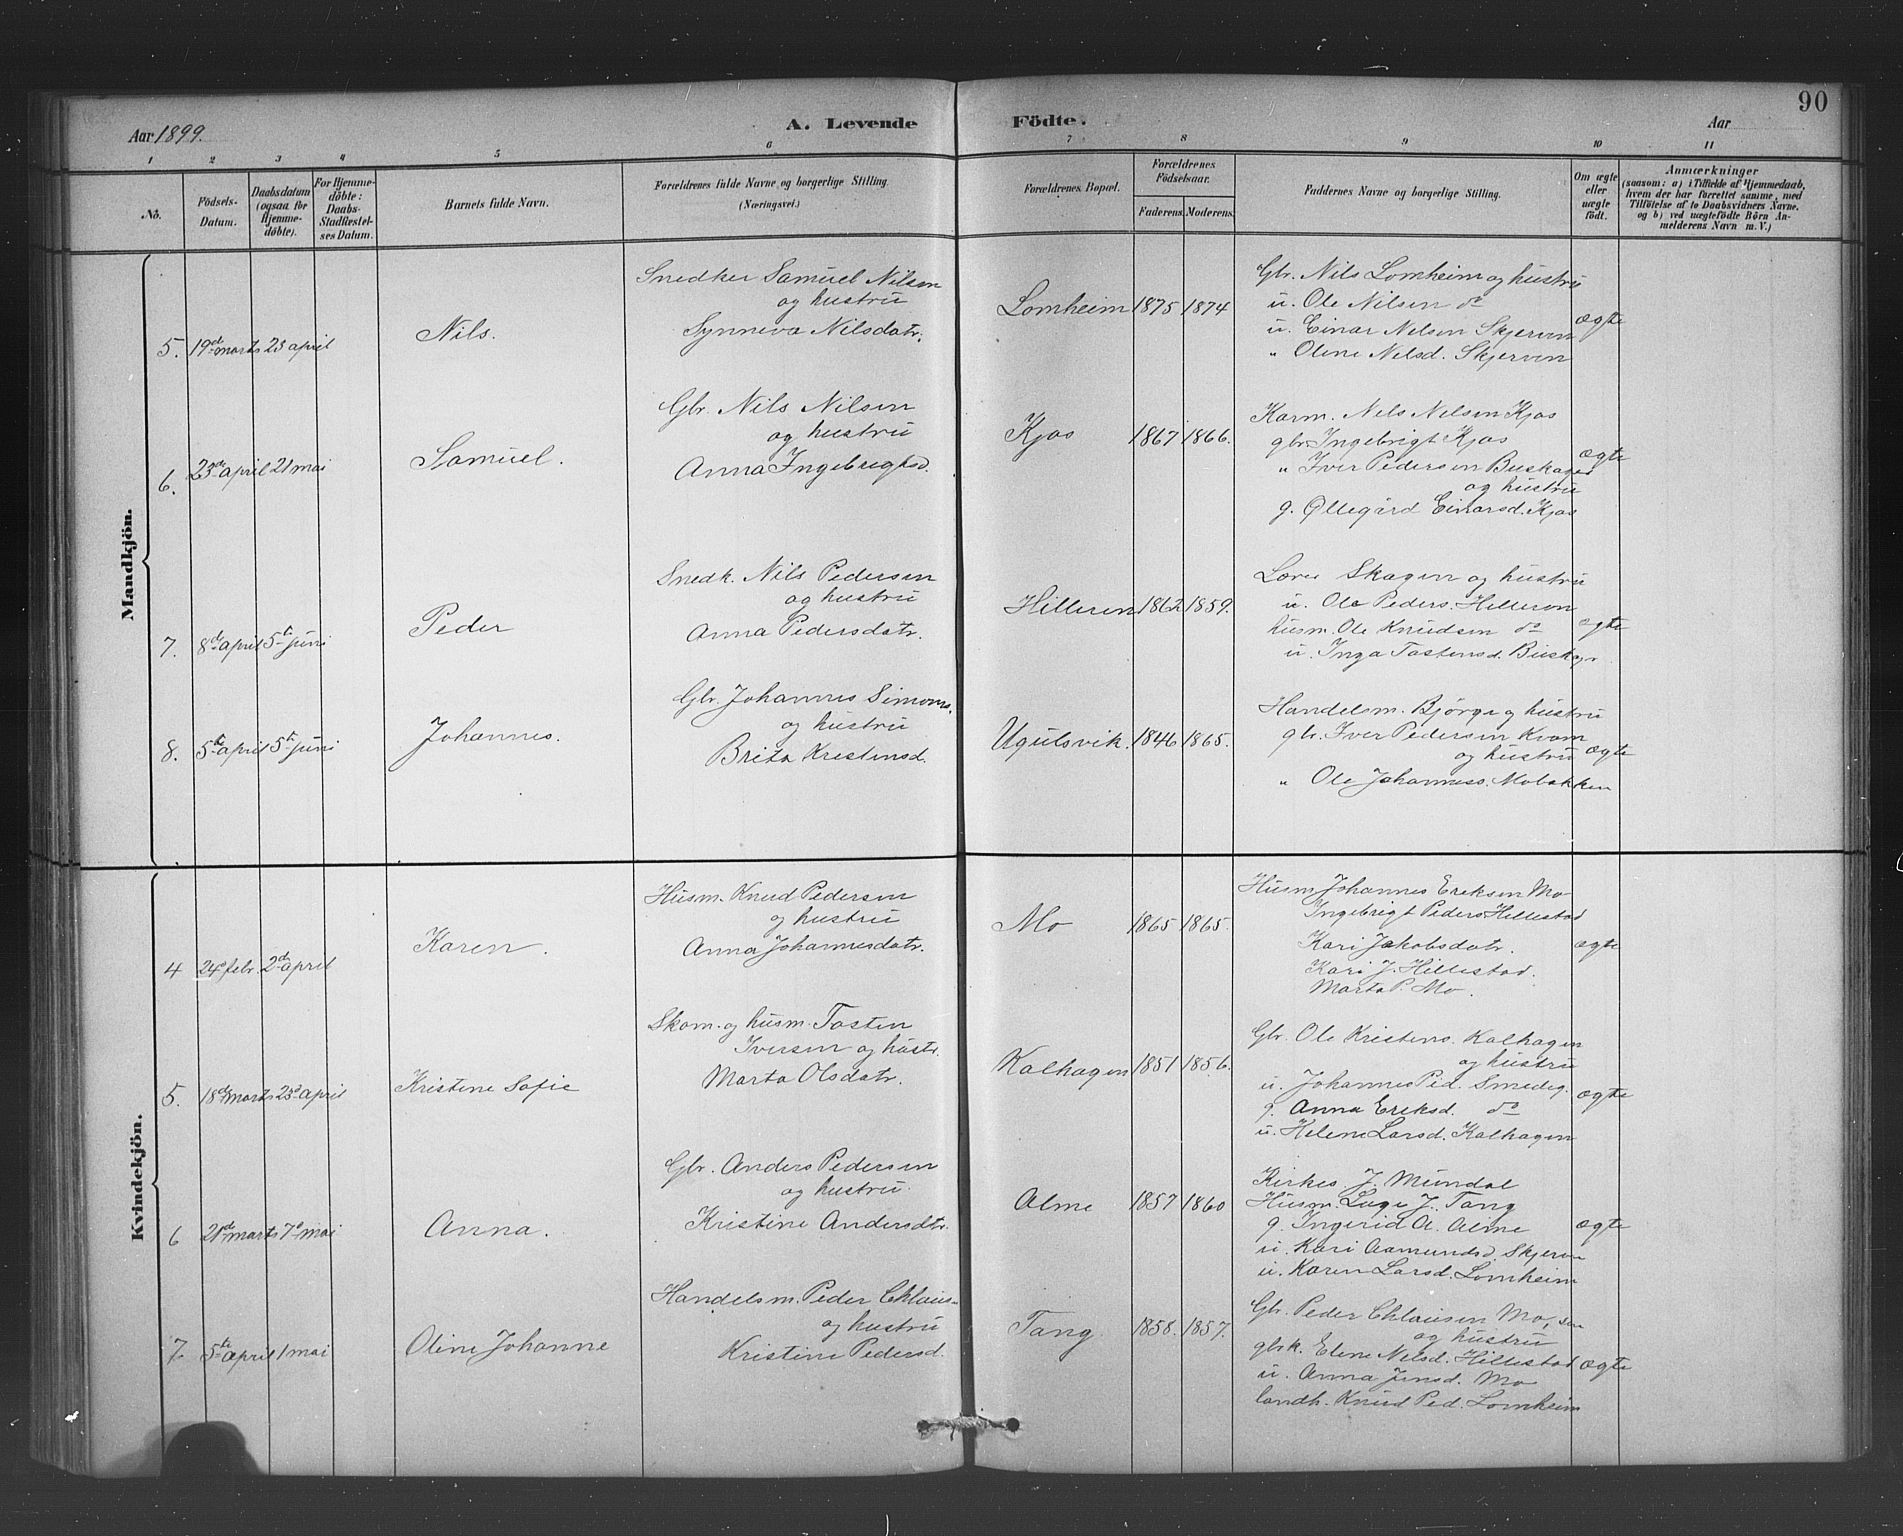 90
Aar 1899.
A. Levende Födte.
Aar
1 2 3 4 5 6 7 8 9 10 11
No.
Födsels-Datum.
Daabsdatum (ogsaa for Hjemme-döbte).
For Hjemme-döbte: Daabs-Stadfæstel-ses Datum.
Barnets fulde Navn.
Forældrenes fulde Navne og borgerlige Stilling.
(Næringsvei.)
Forældrenes Bopæl.
Forældrenes Födselsaar.
Faderens. Moderens.
Faddernes Navne og borgerlige Stilling.
Om ægte eller uægte födt.
Anmærkninger
(saasom: a) i Tilfælde af Hjemmedaab,
hvem der har forrettet samme, med
Tilföielse af to Daabsvidners Navne.
og b) ved uægtefödte Börn An-
melderens Navn m. V.)
Mandkjön.
5. 19d marts 23 april
Nils.
Snedker Samuel Nilsen
og hustru
Synneva Nilsdatr.
Lomheim 1875 1874
Gbr. Nils Lomheim og hustru
u. Ole Nilsen do
u. Einar Nelsen Skjerven
„ Oline Nelsd. Skjerven
ægte
6. 23de april 21 mai
Samuel.
Gbr. Nils Nilsen
og hustru
Anna Ingebrigtsd.
Kjos 1867 1866.
Karm. Nels Nelsen Kjos
gbr. Ingebrigt Kjos
„ Iver Pedersen Buskager
og hustru
g. Øllegård Einarsd. Kjos
ægte
7. 8d april 5te juni
Peder
Snedk. Nils Pedersen
og hustru
Anna Pedersdatr.
Hilleren 1862 1859.
Lærer Skagen og hustru
u. Ole Peders. Hilleren
husm. Ole Knudsen do
u. Inga Tostensd. Buskager
ægte
8. 5te april 5te juni
Johannes.
Gbr. Johannes Simons.
og hustru
Brita Kristensd.
Ugulsvik. 1846 1865.
Handelsm. Bjørge og hustru
gbr. Iver Pedersen Kvam
og hustru
„ Ole Johanness. Mobakken
ægte
Kvindekjön.
4 24de febr. 2d april
Karen.
Husm. Knud Pedersen
og hustru
Anna Johannesdatr.
Mo 1865 1865.
Husm. Johannes Eriksen Mo
Ingebrigt Peders Hillestad
Kari Jakobsdatr.
Kari J. Hillestad.
Marta P. Mo.
ægte
5. 18d marts 23d april
Kristine Sofie
Skom. og husm. Tosten
Iversen og hustr.
Marta Olsdatr.
Kalhagen 1851 1856.
Gbr. Ole Kristens. Kalhagen
og hustru
u. Johannes Ped. Smedeg.
g. Anna Eriksd. do
u. Helene Larsd. Kalhagen
ægte
6 21d marts 7de mai
Anna.
Gbr. Anders Pedersen
og hustru.
Kristine Andersdtr.
Alme 1857 1860
Kirkes. J. Mundal
Husm. Lage J. Tang
g. Ingerid A. Alme
u. Kari Aamundsd. Skjerven
u. Karen Larsd. Lomheim
ægte
7. 5te april 1 mai
Oline Johanne
Handelsm. Peder Chlaus-
og hustru
Kristine Pedersd.
Tang. 1858. 1857.
Gbr. Peder Chlausen Mo, sen
og hustru
gbrk. Elene Nilsd. Hillestad
u. Anna Jensd. Mo
landh. Knud Ped. Lomheim
ægte